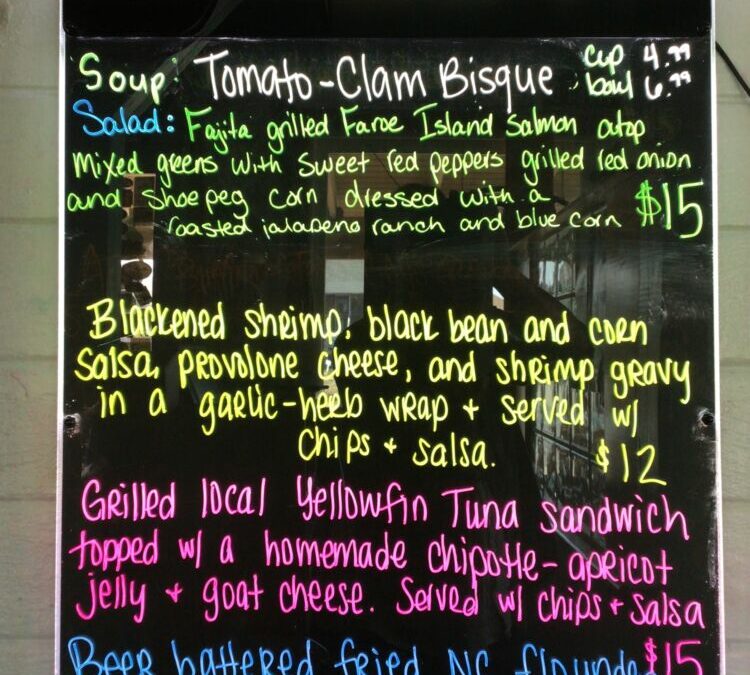 Soup: Tomato-Clam Bisque cup 4.99
bowl 6.99
Salad: Fajita grilled Faroe Island Salmon atop
mixed greens with sweet red peppers grilled red onion
and shoepeg corn dressed with a
roasted jalapeno ranch and blue corn $15
Blackened shrimp, black bean and corn
salsa, provolone cheese, and shrimp gravy
in a garlic-herb wrap + served w/
chips + salsa.
$12
Grilled local Yellowfin Tuna sandwich
topped w/ a homemade chipotle-apricot
jelly + goat cheese. Served w/ chips + salsa
$15
Beer battered fried NC